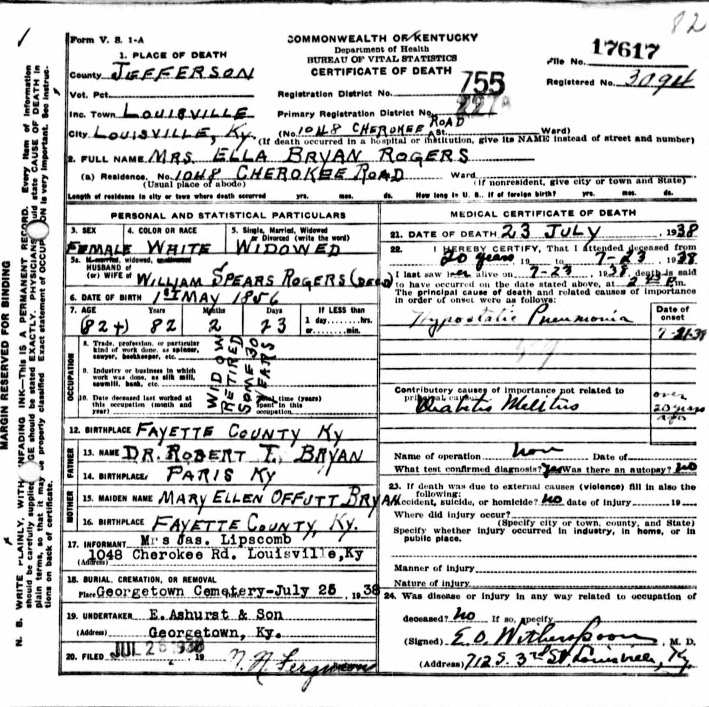 82
Form V. S. 1-A
COMMONWEALTH OF KENTUCKY
Department of Health
BUREAU OF VITAL STATISTICS
CERTIFICATE OF DEATH
File No. 17617
Registered No. 3094
1. PLACE OF DEATH
County JEFFERSON
Vot. Pct.
Inc. Town LOUISVILLE
City LOUISVILLE, KY.
Registration District No. 755
Primary Registration District No.
(No. 1048 CHEROKEE ROAD St. Ward)
(If death occurred in a hospital or institution, give its NAME instead of street and number)
2. FULL NAME MRS. ELLA BRYAN ROGERS
(a) Residence. No. 1048 CHEROKEE ROAD Ward
(Usual place of abode) (If nonresident, give city or town and State)
Length of residence in city or town where death occurred yrs. mos. ds. How long in U. S. if of foreign birth? yrs. mos. ds.
MARGIN RESERVED FOR BINDING
PERSONAL AND STATISTICAL PARTICULARS
3. SEX
FEMALE
4. COLOR OR RACE
WHITE
5. Single, Married, Widowed
or Divorced (write the word)
WIDOWED
5a. If married, widowed,
HUSBAND of
(or) WIFE of WILLIAM SPEARS ROGERS (DECD)
6. DATE OF BIRTH 1ST MAY 1856
7. AGE Years Months Days If LESS than
1 day hrs.
or min.
(82+) 82 2 23
OCCUPATION
8. Trade, profession, or particular
kind of work done, as spinner,
sawyer, bookkeeper, etc.
9. Industry or business in which
work was done, as silk mill,
sawmill, bank, etc.
10. Date deceased last worked at
this occupation (month and
year)
time (years)
spent in this
occupation
WIDOW
RETIRED
SOME 30
YEARS
12. BIRTHPLACE FAYETTE COUNTY KY
FATHER
13. NAME DR. ROBERT T. BRYAN
14. BIRTHPLACE PARIS KY
MOTHER
15. MAIDEN NAME MARY ELLEN OFFUTT BRYAN
16. BIRTHPLACE FAYETTE COUNTY, KY.
17. INFORMANT Mrs Jas. Lipscomb
(Address) 1048 Cherokee Rd. Louisville, Ky
18. BURIAL, CREMATION, OR REMOVAL
Place Georgetown Cemetery-July 25, 1938
19. UNDERTAKER E. Ashurst & Son
(Address) Georgetown, Ky.
20. FILED JUL 26 1938, 19
MEDICAL CERTIFICATE OF DEATH
21. DATE OF DEATH 23 JULY 1938
22. I HEREBY CERTIFY, That I attended deceased from
20 years 19 to 7-23 1938
I last saw her alive on 7-23, 1938, death is said
to have occurred on the date stated above, at m.
The principal cause of death and related causes of importance
in order of onset were as follows:
Date of
onset
Hypostatic Pneumonia 7-21-38
Contributory causes of importance not related to
principal cause:
Diabetis Melitus over
20 years
ago
Name of operation Date of
What test confirmed diagnosis? Yes Was there an autopsy? No
23. If death was due to external causes (violence) fill in also the
following:
Accident, suicide, or homicide? No date of injury 19
Where did injury occur?
(Specify city or town, county, and State)
Specify whether injury occurred in industry, in home, or in
public place.
Manner of injury
Nature of injury
24. Was disease or injury in any way related to occupation of
deceased? No If so, specify
(Signed) E. O. Witherspoon M. D.
(Address) 712 S. 3rd St Louisville, Ky.